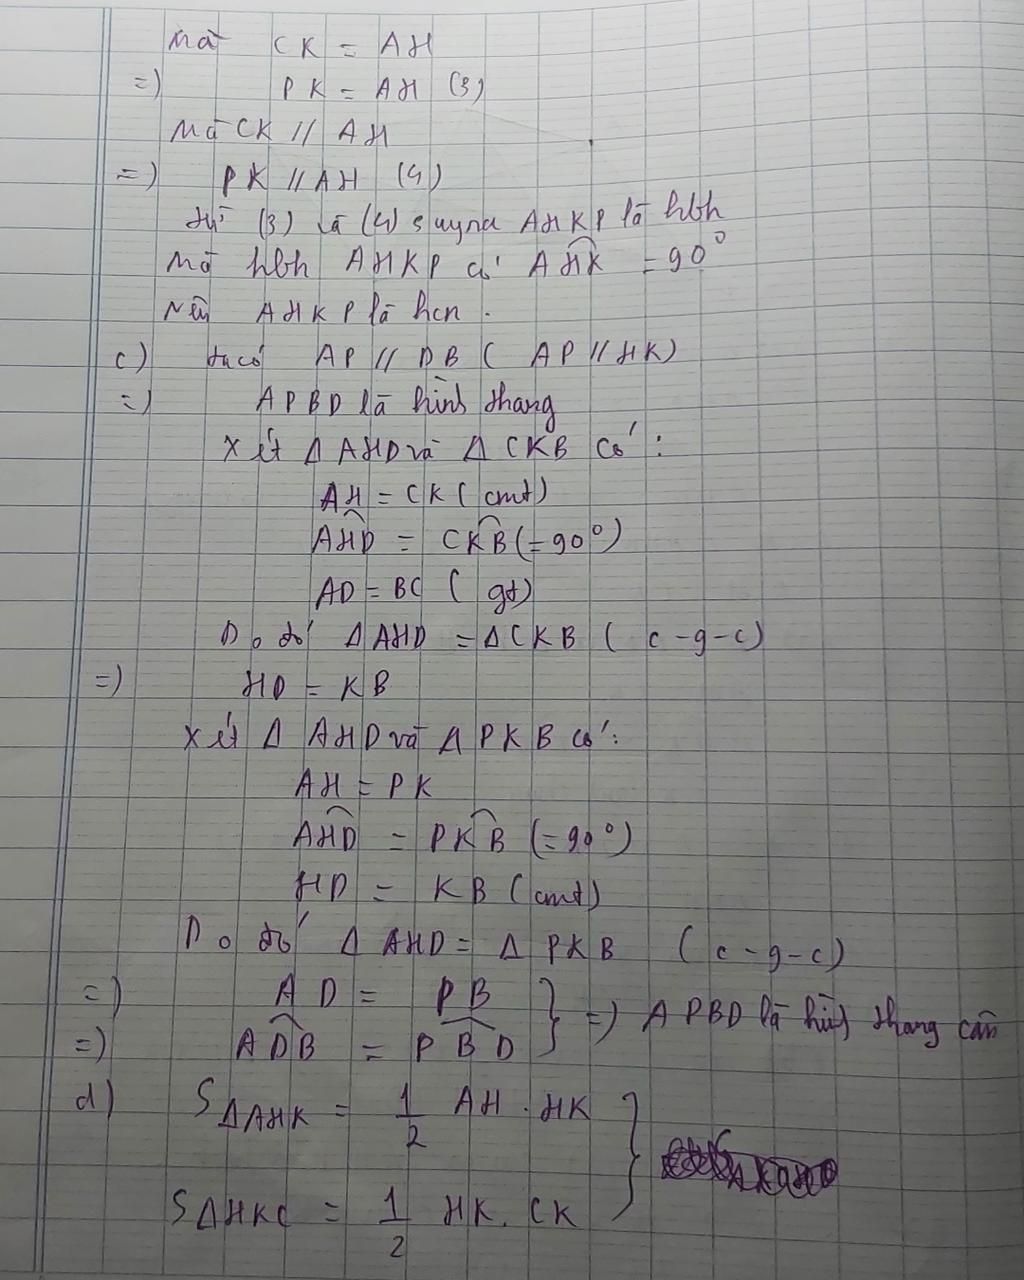 Mà CK = AH
=) PK = AH (3)
Mà CK // AH
=) PK // AH (4)
Từ (3) và (4) suy ra AHKP là hbh
Mà hbh AHKP có AHK = 90°
Nên AHKP là hcn.
c) ta có AP // DB ( AP // HK)
=) APBD là hình thang
Xét Δ AHD và Δ CKB có :
AH = CK ( cmt)
AHD = CKB (= 90°)
AD = BC ( gt)
Do đó Δ AHD = Δ CKB ( c - g - c)
=) HD = KB
Xét Δ AHD và Δ PKB có :
AH = PK
AHD = PKB (= 90°)
HD = KB (cmt)
Do đó Δ AHD = Δ PKB ( c - g - c)
=) AD = PB
=) ADB = PBD } =) APBD là hình thang cân
d) SΔAHK = 1/2 AH . HK
SΔHKC = 1/2 HK. CK }